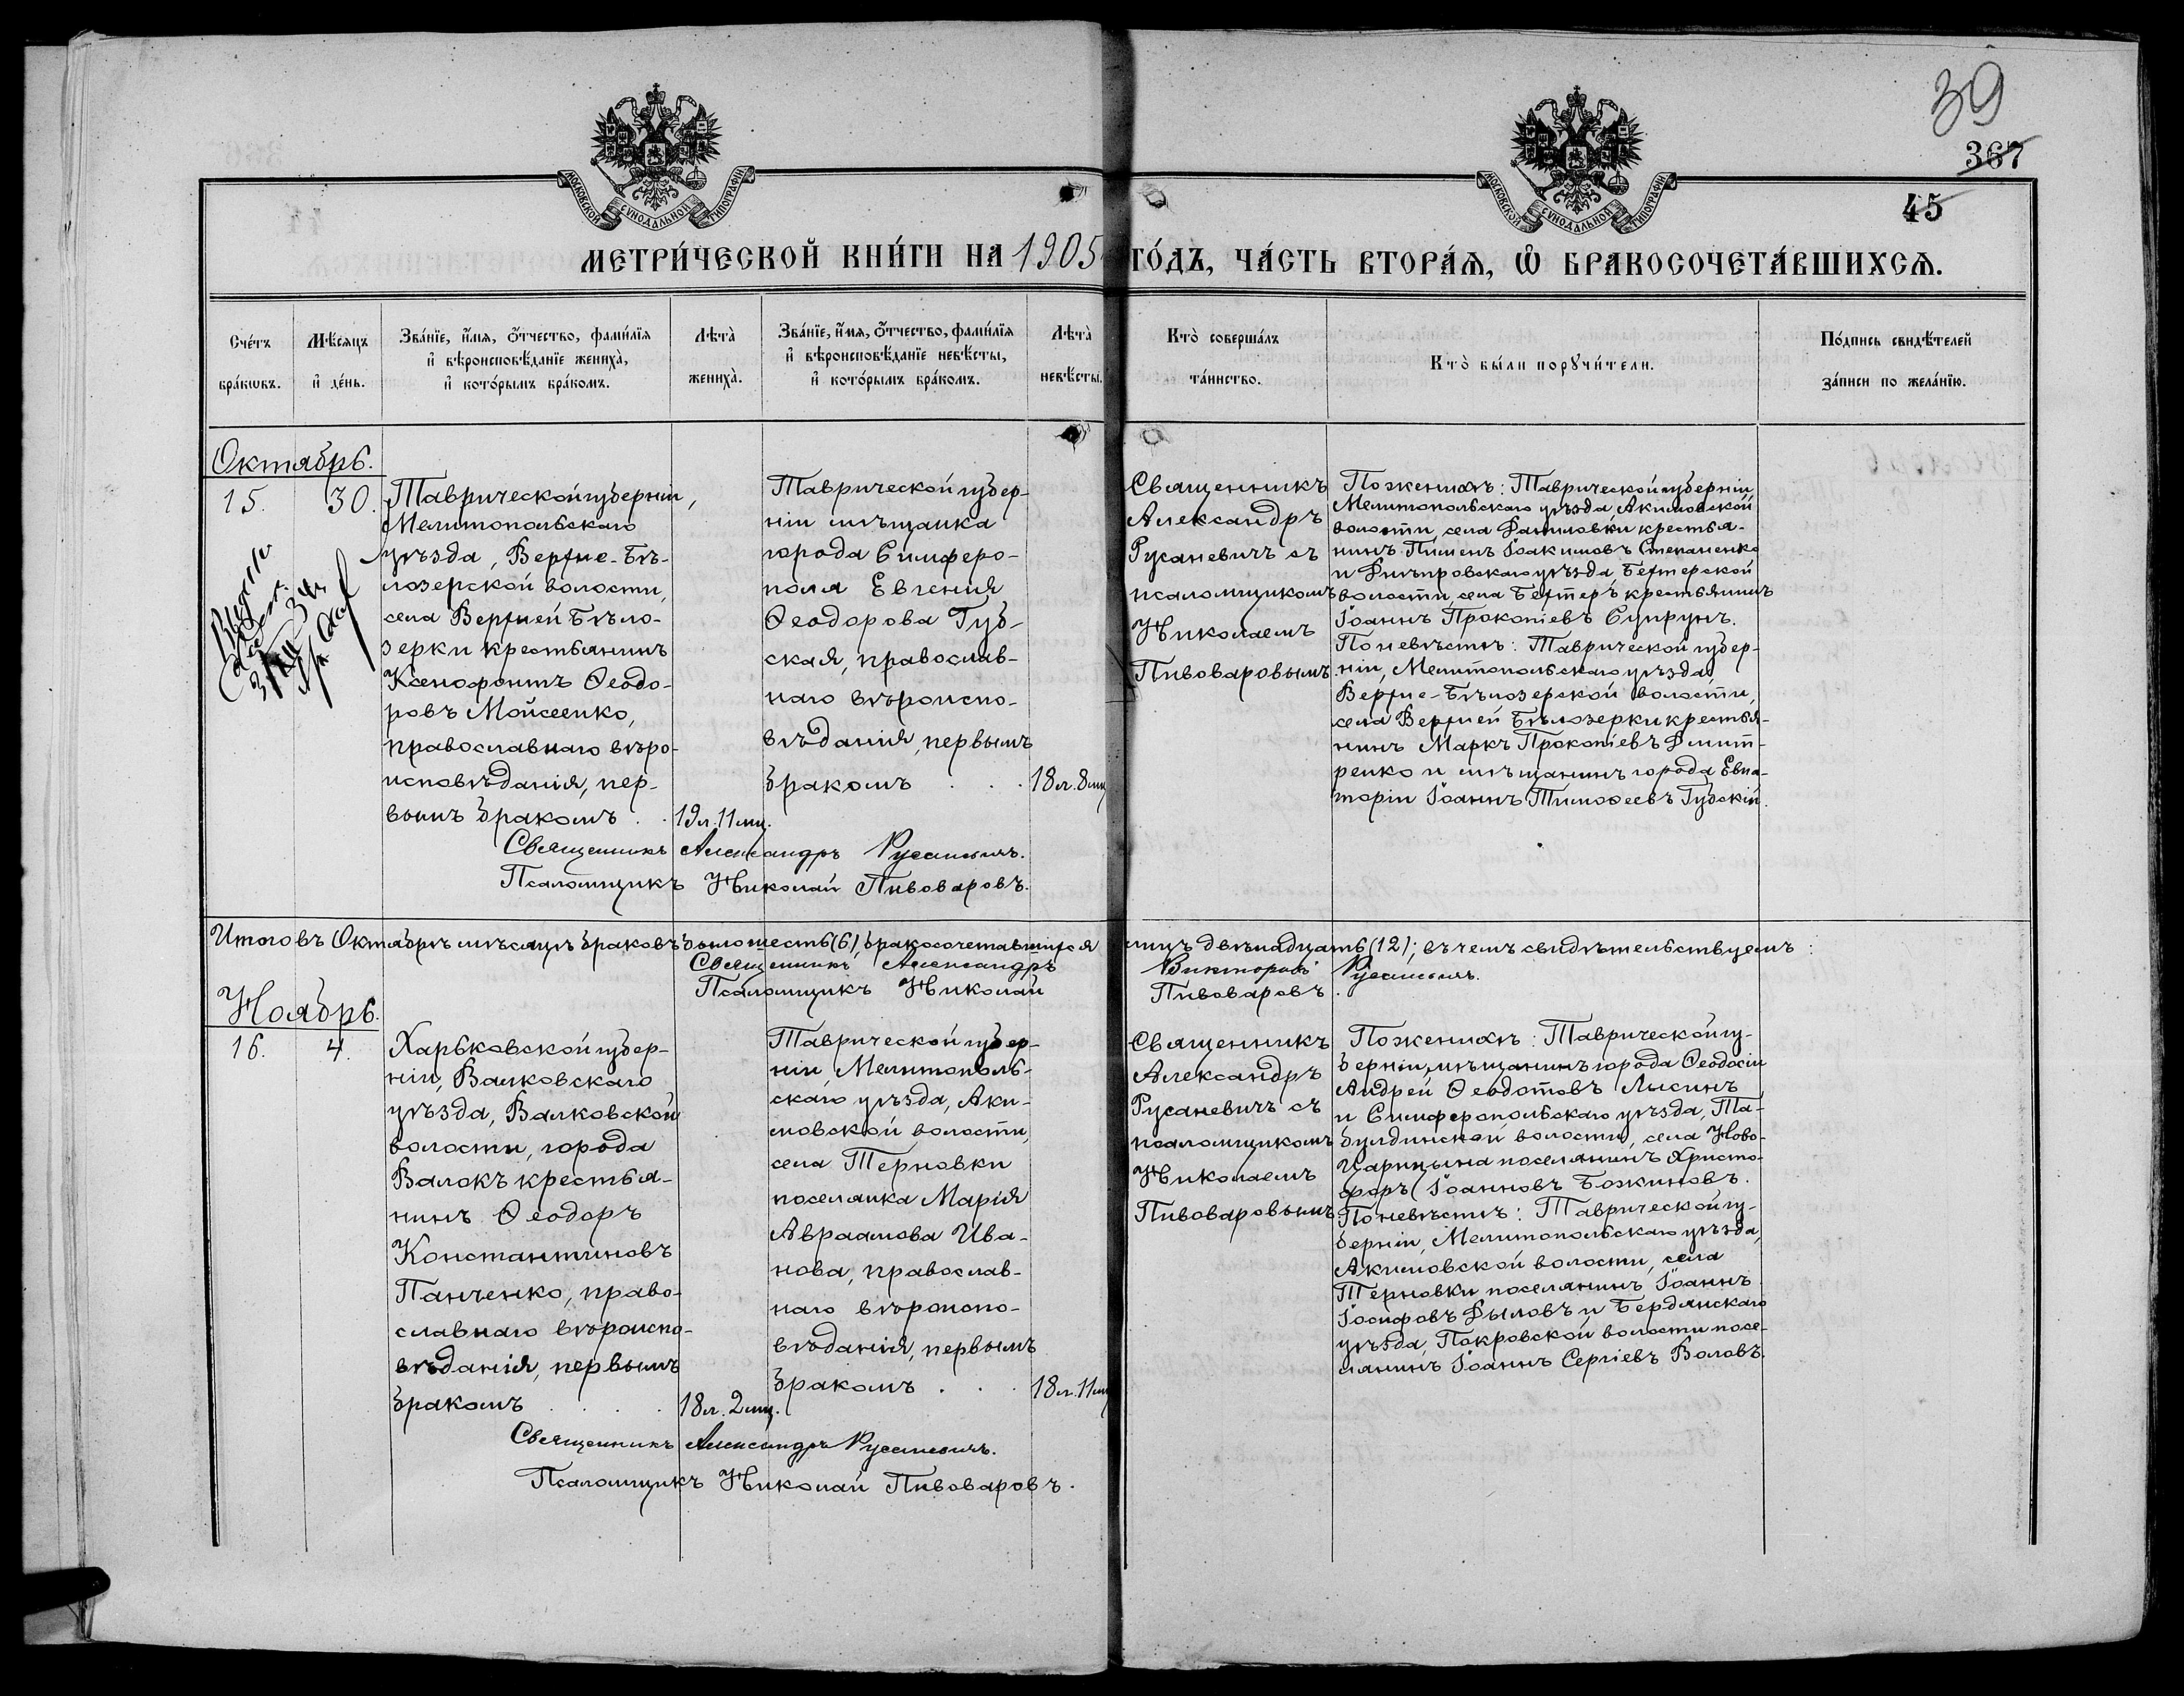 39
367
45
МОСКОВСКОЙ СѴНОДАЛЬНОЙ ТИПОГРАФІИ
МОСКОВСКОЙ СѴНОДАЛЬНОЙ ТИПОГРАФІИ
МЕТРИ́ЧЕСКОЙ КНИ́ГИ НА 1905 ГО́ДЪ, ЧА́СТЬ ВТОРА́Ѧ, Ѽ БРАКОСОЧЕТА́ВШИХСѦ.
Сче́тъ
бра́кѡвъ.
Мѣ́сяцъ
и҆ де́нь.
Зва́нїе, и҆́мя, ѻ҆́тчество, фами́лїя
и҆ вѣроисповѣ́данїе жениха̀,
и҆ кото́рымъ бра́комъ.
Лѣта̀
жениха̀.
Зва́нїе, и҆́мя, ѻ҆́тчество, фами́лїя
и҆ вѣроисповѣ́данїе невѣ́сты,
и҆ кото́рымъ бра́комъ.
Лѣта̀
невѣ́сты.
Кто̀ соверша́лъ
та́инство.
Кто̀ бы́ли порꙋчи́тели.
По́дпись свидѣ́телей
за́писи по жела́нїю.
Октябрь.
15.
30.
Таврической губерніи,
Мелитопольскаго
уѣзда, Верхне-Бѣ-
лозерской волости,
села Верхней Бѣло-
зерки крестьянинъ
Ксенофонтъ Ѳеодо-
ровъ Мойсеенко,
православнаго вѣро-
исповѣданія, пер-
вымъ бракомъ . .
19 л. 11 мц.
Таврической губер-
ніи мѣщанка
города Симферо-
поля Евгенія
Ѳеодорова Губ-
ская, православ-
наго вѣроиспо-
вѣданія, первымъ
бракомъ . . .
18 л. 8 мц
Священникъ
Александръ
Русаневичъ съ
псаломщикомъ
Николаемъ
Пивоваровымъ.
По женихѣ: Таврической губерніи
Мелитопольскаго уѣзда, Акимовской
волости, села Даниловки крестья-
нинъ Пименъ Іоакимовъ Степаненко
и Днѣпровскаго уѣзда, Бехтерской
волости, села Бехтеръ крестьянинъ
Іоаннъ Прокопіевъ Супрунъ.
По невѣстѣ: Таврической губер-
ніи, Мелитопольскаго уѣзда,
Верхне-Бѣлозерской волости,
села Верхней Бѣлозерки крестья-
нинъ Маркъ Прокопіевъ Дмит-
ренко и мѣщанинъ города Евпа-
торіи Іоаннъ Тимоѳеевъ Губскій.
Священникъ Александръ Русаневичъ.
Псаломщикъ Николай Пивоваровъ.
Итого въ Октябрѣ мѣсяцѣ браковъ было шесть (6), бракосочетавшихся лицъ двѣнадцать (12); въ чемъ свидѣтельствуемъ:
Священникъ Александръ Викторовъ Русаневичъ.
Псаломщикъ Николай Пивоваровъ.
Ноябрь.
16.
4.
Харьковской губер-
ніи, Валковскаго
уѣзда, Валковской
волости, города
Валокъ крестья-
нинъ Ѳеодоръ
Константиновъ
Панченко, право-
славнаго вѣроиспо-
вѣданія, первымъ
бракомъ . . . .
18 л. 2 мц.
Таврической губер-
ніи, Мелитополь-
скаго уѣзда, Аки-
мовской волости,
села Терновки
поселянка Марія
Авраамова Ива-
нова, православ-
наго вѣроиспо-
вѣданія, первымъ
бракомъ . . .
18 л. 11 мц
Священникъ
Александръ
Русаневичъ съ
псаломщикомъ
Николаемъ
Пивоваровымъ
По женихѣ: Таврической гу-
берніи, мѣщанинъ города Ѳеодосіи
Андрей Ѳеодотовъ Лысинъ
и Симферопольскаго уѣзда, Та-
булдинской волости, села Ново-
Царицына поселянинъ Христо-
форъ Іоанновъ Божиновъ.
По невѣстѣ: Таврической гу-
берніи, Мелитопольскаго уѣзда,
Акимовской волости, села
Терновки поселянинъ Іоаннъ
Іосифовъ Дыловъ и Бердянскаго
уѣзда, Покровской волости посе-
лянинъ Іоаннъ Сергіевъ Воловъ.
Священникъ Александръ Русаневичъ.
Псаломщикъ Николай Пивоваровъ.